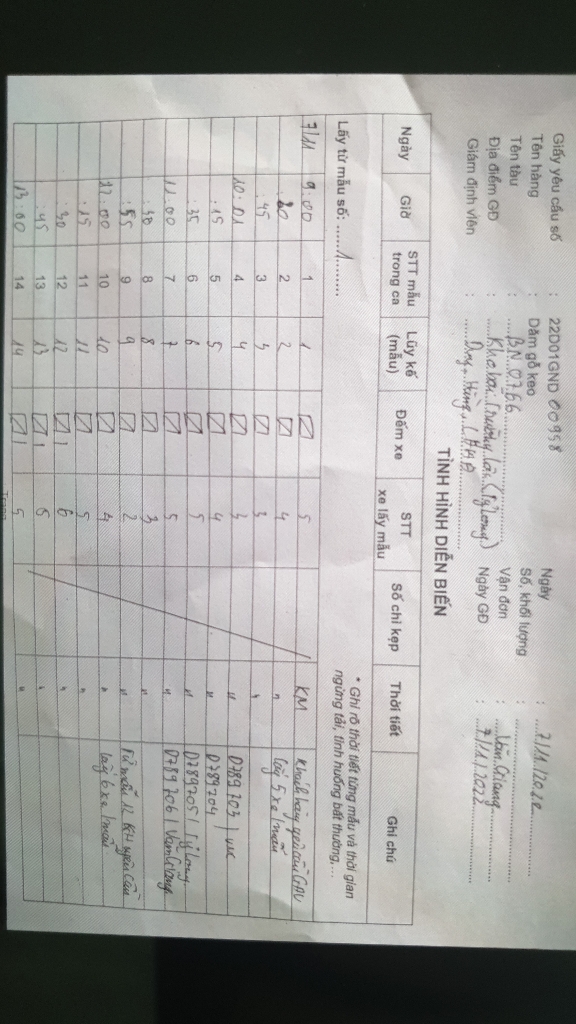 Giấy yêu cầu số : 22D01GND 00958 Ngày : 7/1/2022
Tên hàng : Dăm gỗ keo Số, khối lượng :
Tên tàu : BN 0766 Vận đơn : Văn Giang
Địa điểm GĐ : Kho bãi Trường Lâu (Tỷ Long) Ngày GĐ : 7/1/2022
Giám định viên :
TÌNH HÌNH DIỄN BIẾN
* Ghi rõ thời tiết từng mẫu và thời gian
ngừng tải, tình huống bất thường,...
Lấy từ mẫu số: 1
Ngày Giờ STT mẫu trong ca Lũy kế (mẫu) Đếm xe STT xe lấy mẫu Số chì kẹp Thời tiết Ghi chú
7/11 9:00 1 1 5 KM Khách hàng yêu cầu GĐV
:20 2 2 4 " lấy 5 xe / mẫu
:45 3 3 3 "
10:01 4 4 3 " D789703 |
:15 5 5 4 " D789704
:35 6 6 5 " D789705 | Tỷ Long
11:00 7 7 5 " D789706 | Văn Giang
:30 8 8 3 "
:55 9 9 2 " Từ mẫu 12 KH yêu cầu
12:00 10 10 4 " lấy 6 xe / mẫu
:15 11 11 5 "
:30 12 12 6 "
:45 13 13 6 "
13:00 14 14 5 "